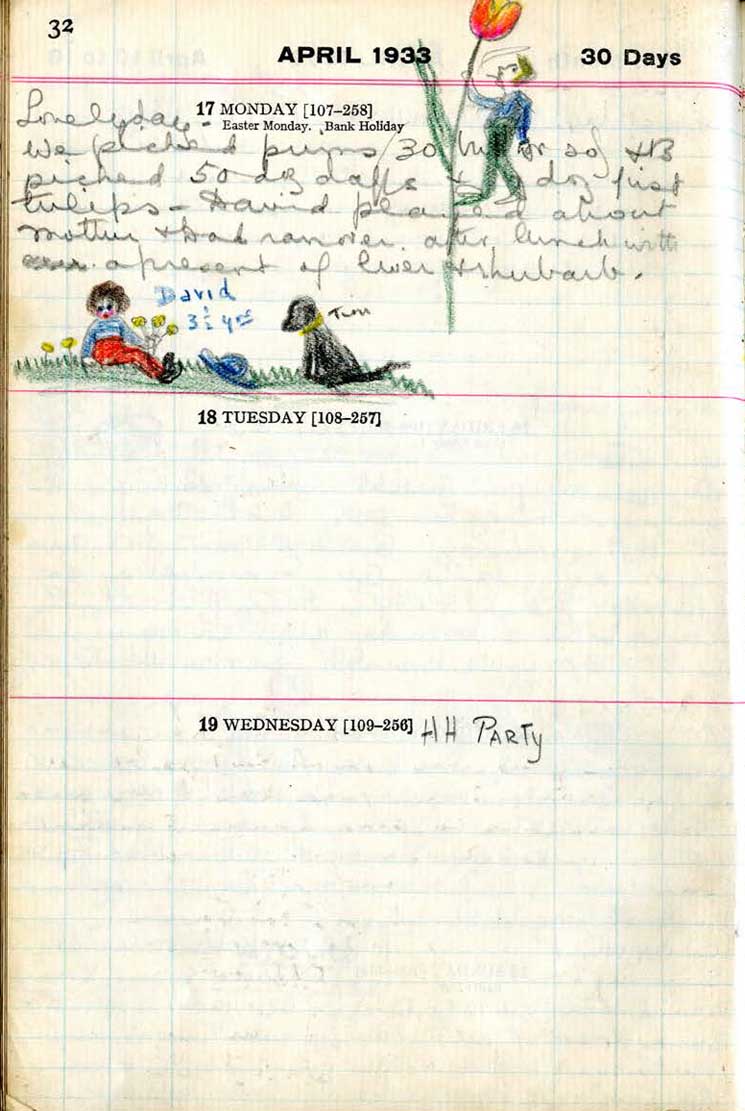 32
APRIL 1933
30 Days
17 MONDAY [107–258]
Easter Monday. Bank Holiday
Lovely day -
We picked prims (30 or so) & B
picked 50 doz daffs & doz first
tulips - David played about
Mother & Dad ran over after lunch with
a present of liver & rhubarb.
David
3½ yrs
Tim
18 TUESDAY [108–257]
19 WEDNESDAY [109–256] HH PARTY